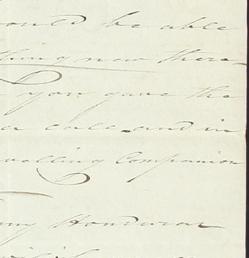 ould be able
thing new there
you gave the
call and in
velling Companion
any Honduras